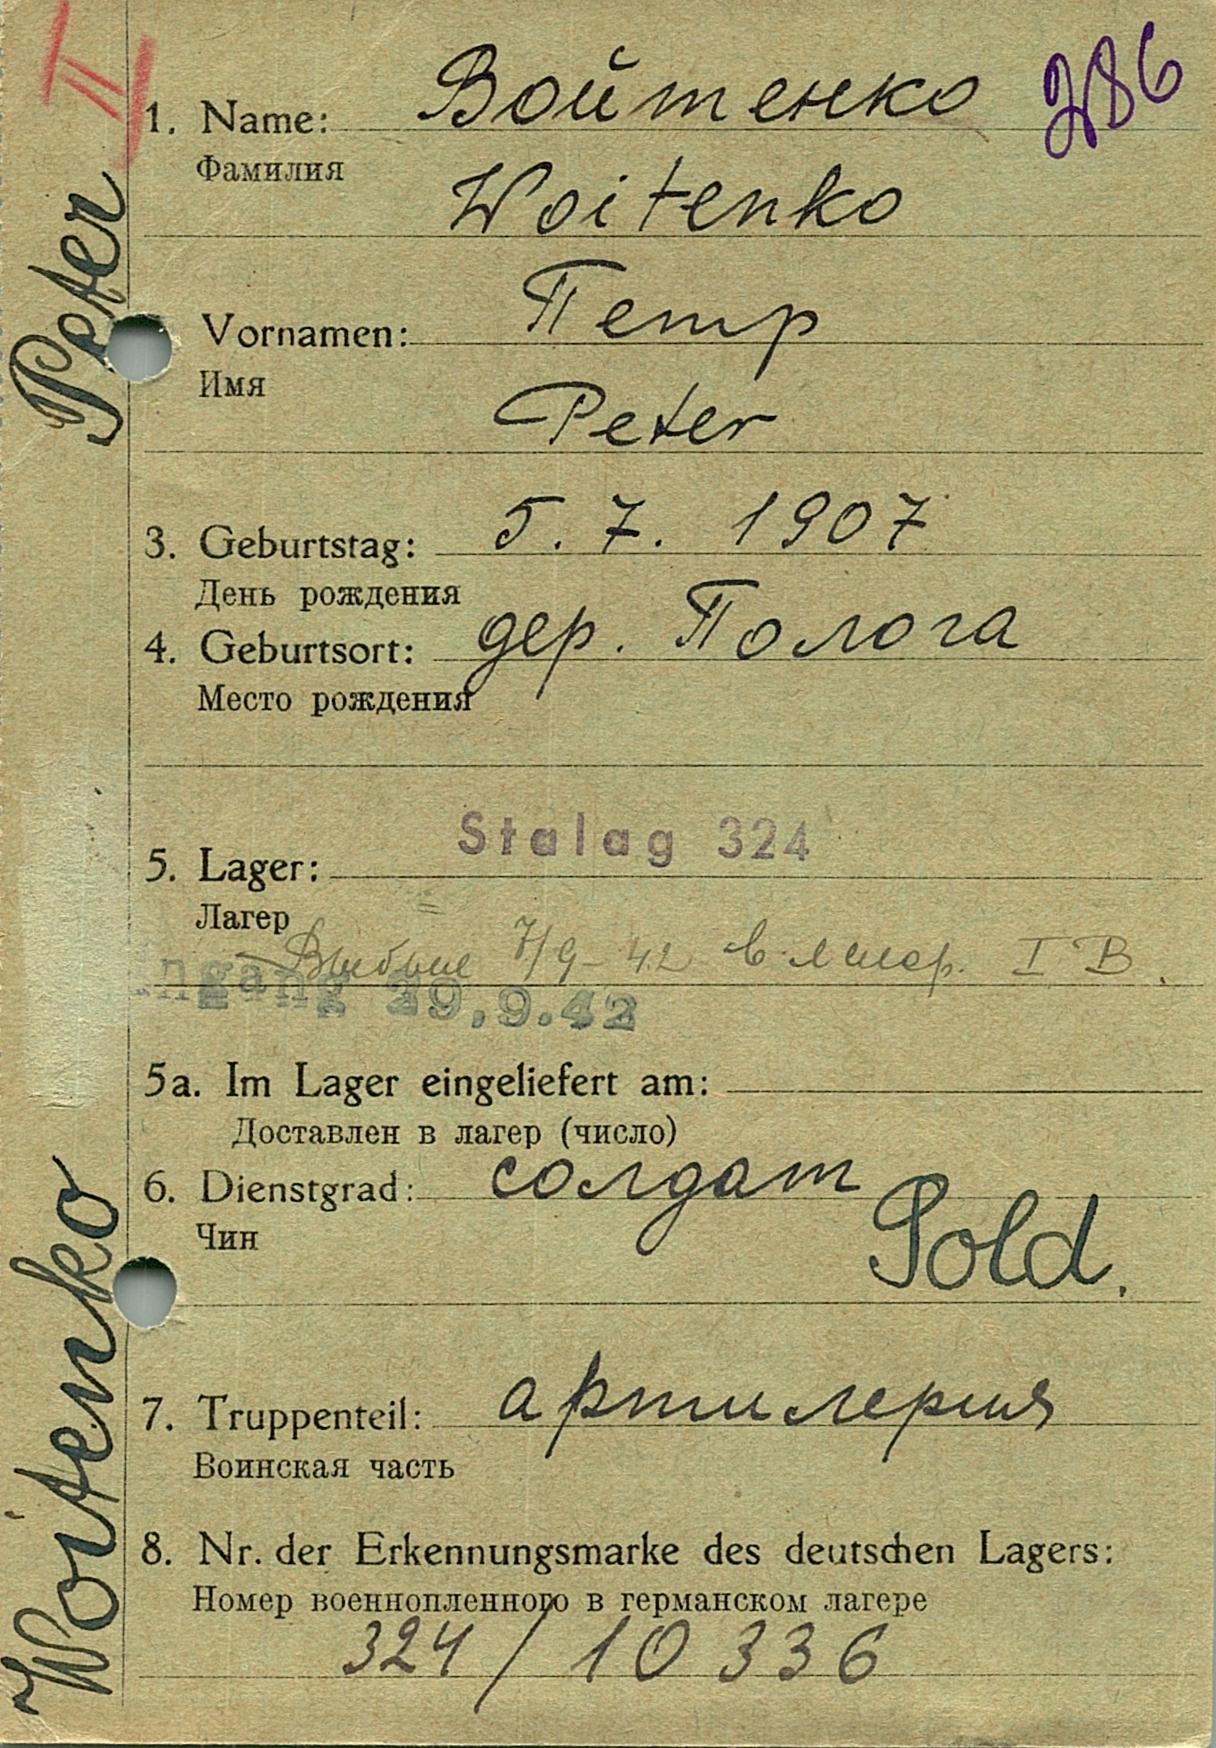 II
286
1. Name: Войтенко
Фамилия
Woitenko
Vornamen: Петр
Имя
Peter
3. Geburtstag: 5. 7. 1907
День рождения
4. Geburtsort: дер. Полога
Место рождения
Stalag 324
5. Lager:
Лагер
Выбыл 7/9-42 в лагер. I B.
ngang 29.9.42
5a. Im Lager eingeliefert am:
Доставлен в лагер (число)
6. Dienstgrad: солдат
Чин
Sold.
7. Truppenteil: артилерия
Воинская часть
8. Nr. der Erkennungsmarke des deutschen Lagers:
Номер военнопленного в германском лагере
324/10336
Woitenko Peter